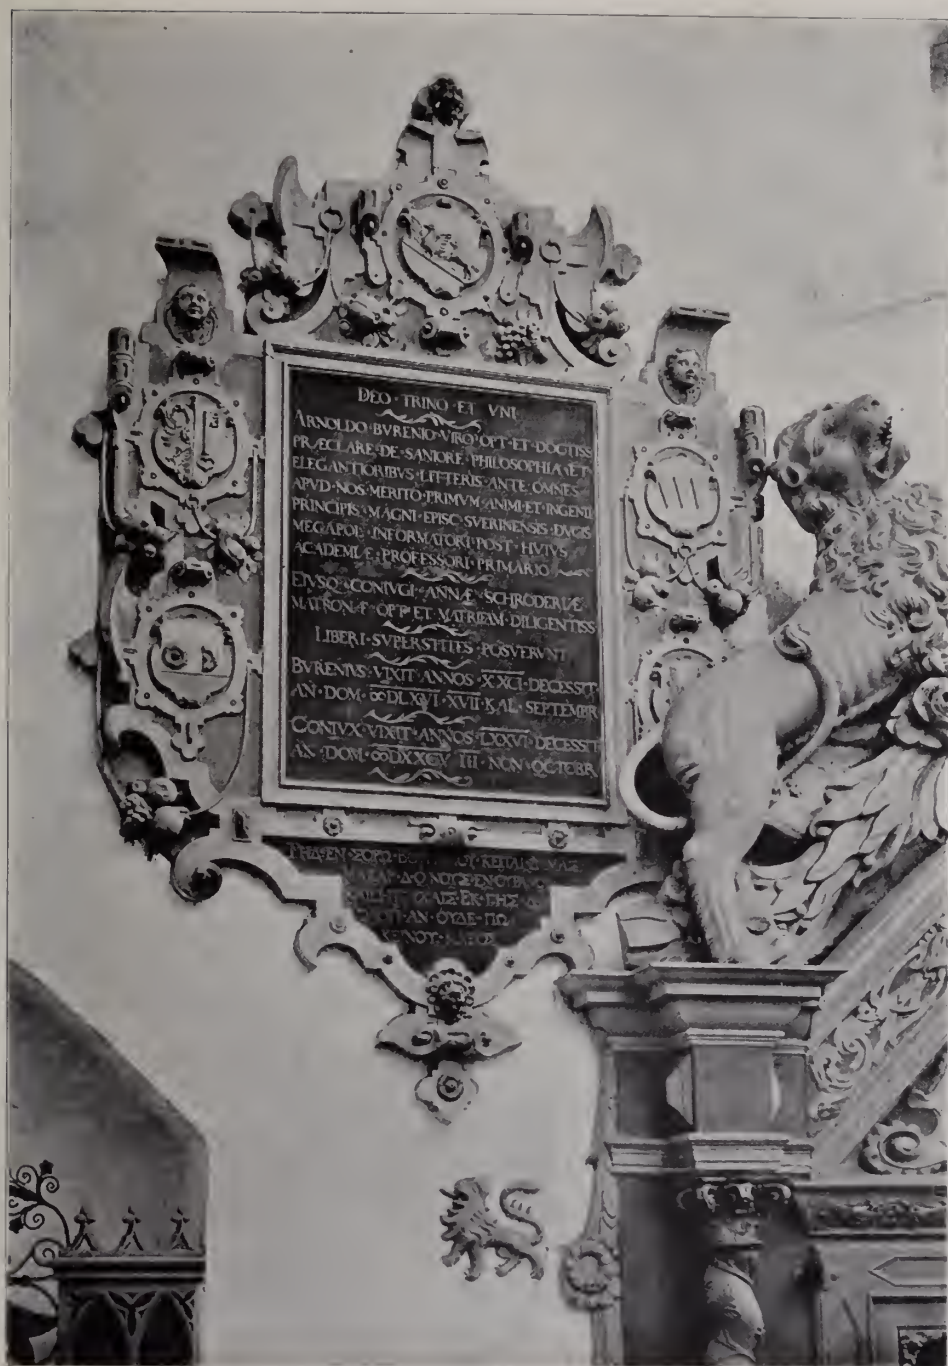 DEO · TRINO · ET · VNI
ARNOLDO · BVRENIO · VIRO · OPT · ET · DOCTISS
PRÆCLARE · DE · SANIORE · PHILOSOPHIA · ET
ELEGANTIORIBVS · LITTERIS · ANTE · OMNES
APVD · NOS · MERITO · PRIMVM · ANIMI · ET · INGENII
PRINCIPIS · MAGNI · EPISC · SVERINENSIS · DVCIS
MEGAPOL · INFORMATORI · POST · HVIVS
ACADEMIÆ · PROFESSORI · PRIMARIO
EIVSQ · CONIVGI · ANNÆ · SCHRODERIÆ
MATRONÆ · OPT · ET · MATRIFAM · DILIGENTISS
LIBERI · SVPERSTITES · POSVERVNT
BVRENIVS · VIXIT · ANNOS · XXCI · DECESSIT
AN · DOM · ꝏDLXVI · XVII · KAL · SEPTEMBR
CONIVX · VIXIT · ANNOS · LXXVI · DECESSIT
AN · DOM · III · NON · OCTOBR
ΝΟΥΣ
ΕΚ · ΓΗΣ
ΑΝ · ΟΥΔΕ · ΠΩ